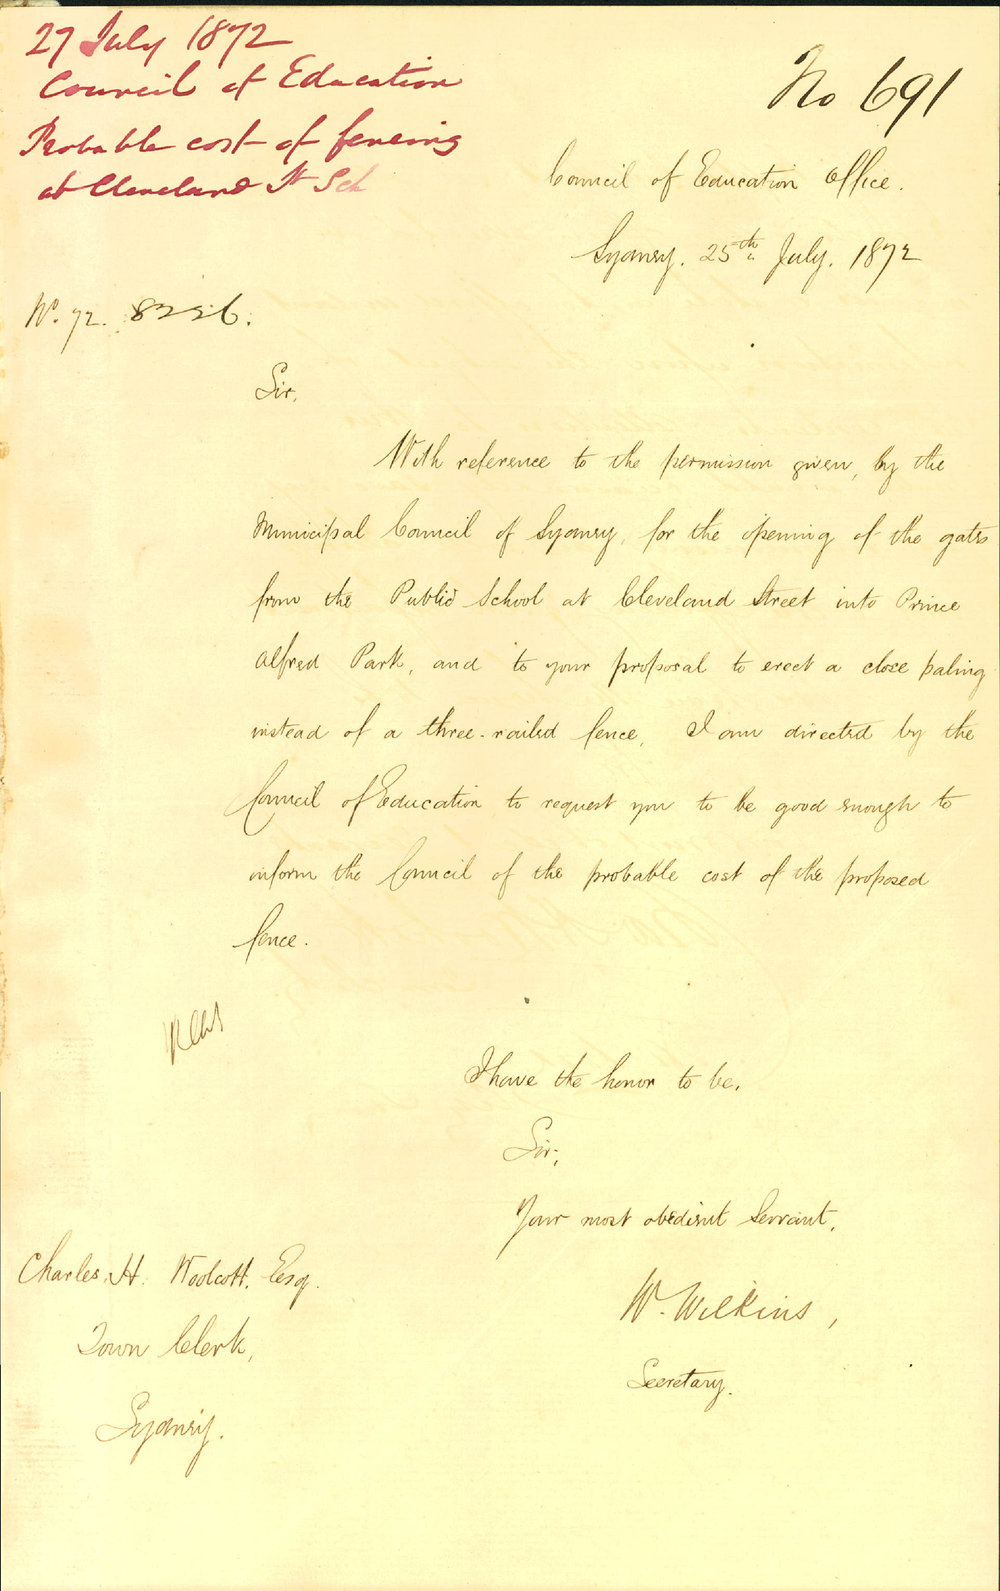 27 July 1872
Council of Education
Probable cost of fencing
at Cleveland St Sch
No 691
Council of Education Office.
Sydney. 25th July. 1872
Sir,
With reference to the permission given, by the
Municipal Council of Sydney, for the opening of the gates
from the Public School at Cleveland Street into Prince
Alfred Park, and to your proposal to erect a close paling
instead of a three-railed fence, I am directed by the
Council of Education to request you to be good enough to
inform the Council of the probable cost of the proposed
fence.
I have the honor to be,
Sir,
Your most obedient Servant,
W. Wilkins,
Secretary.
Charles H. Woolcott, Esq.
Town Clerk,
Sydney.